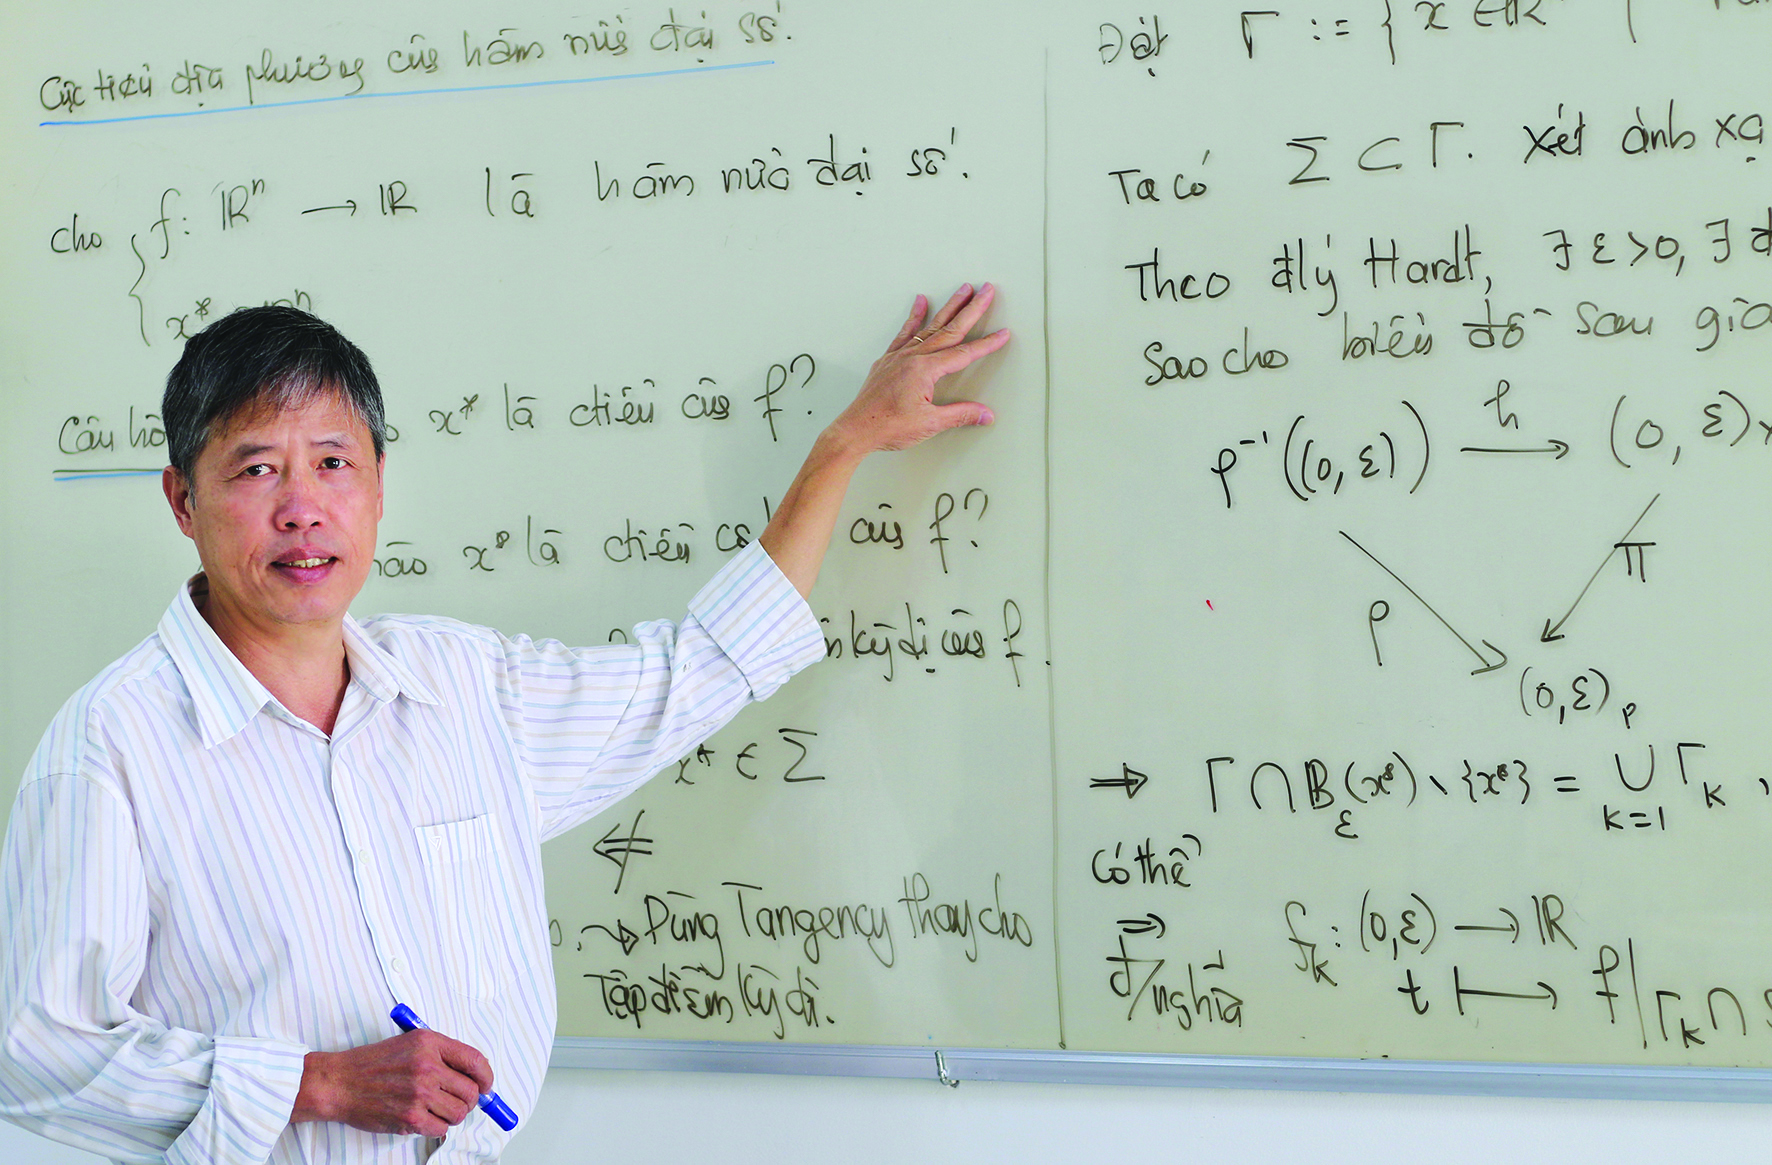 Cực tiểu địa phương của hàm nửa đại số.
cho { f: ℝⁿ → ℝ là hàm nửa đại số.
x*
Câu hỏi x* là ctiểu của f?
nào x* là ctiểu của f?
kỳ dị của f.
x* ∈ Σ
⇍
⇝ Dùng Tangency thay cho
Tập điểm kỳ dị.
Đặt Γ := { x ∈ ℝⁿ |
Ta có Σ ⊂ Γ. Xét ánh xạ
Theo đlý Hardt, ∃ ε > 0, ∃
Sao cho biểu đồ sau giao
ρ⁻¹((0, ε)) —h→ (0, ε) ×
ρ π
(0, ε)
⇒ Γ ∩ 𝔹_ε(x*) \ {x*} = ∪_{k=1} Γ_k,
Có thể
⇒ f_k: (0, ε) → ℝ
đ/nghĩa t ↦ f|Γ_k ∩